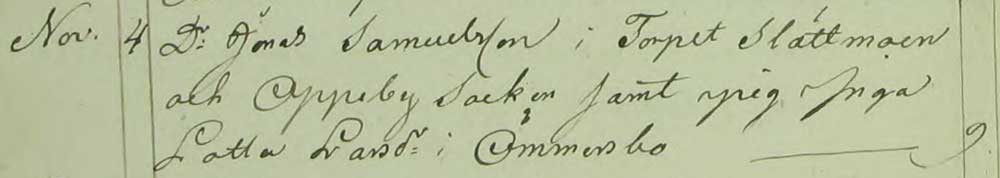 Nov. 4 Dr. Jonas Samuelson i Torpet Slättmoen
och Oppeby Socken samt pig Inga
Lotta Larsdr. i Ommersbo — 9.